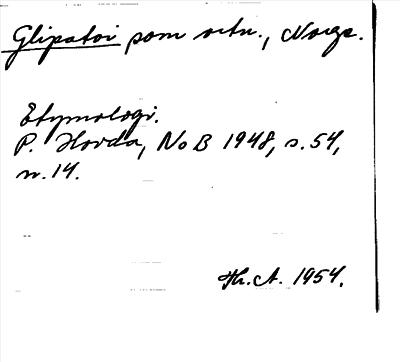 Glipatoi som ortn., Norge.
Etymologi.
P. Hovda, NoB 1948, s. 54,
n. 14.
Th. A. 1954.